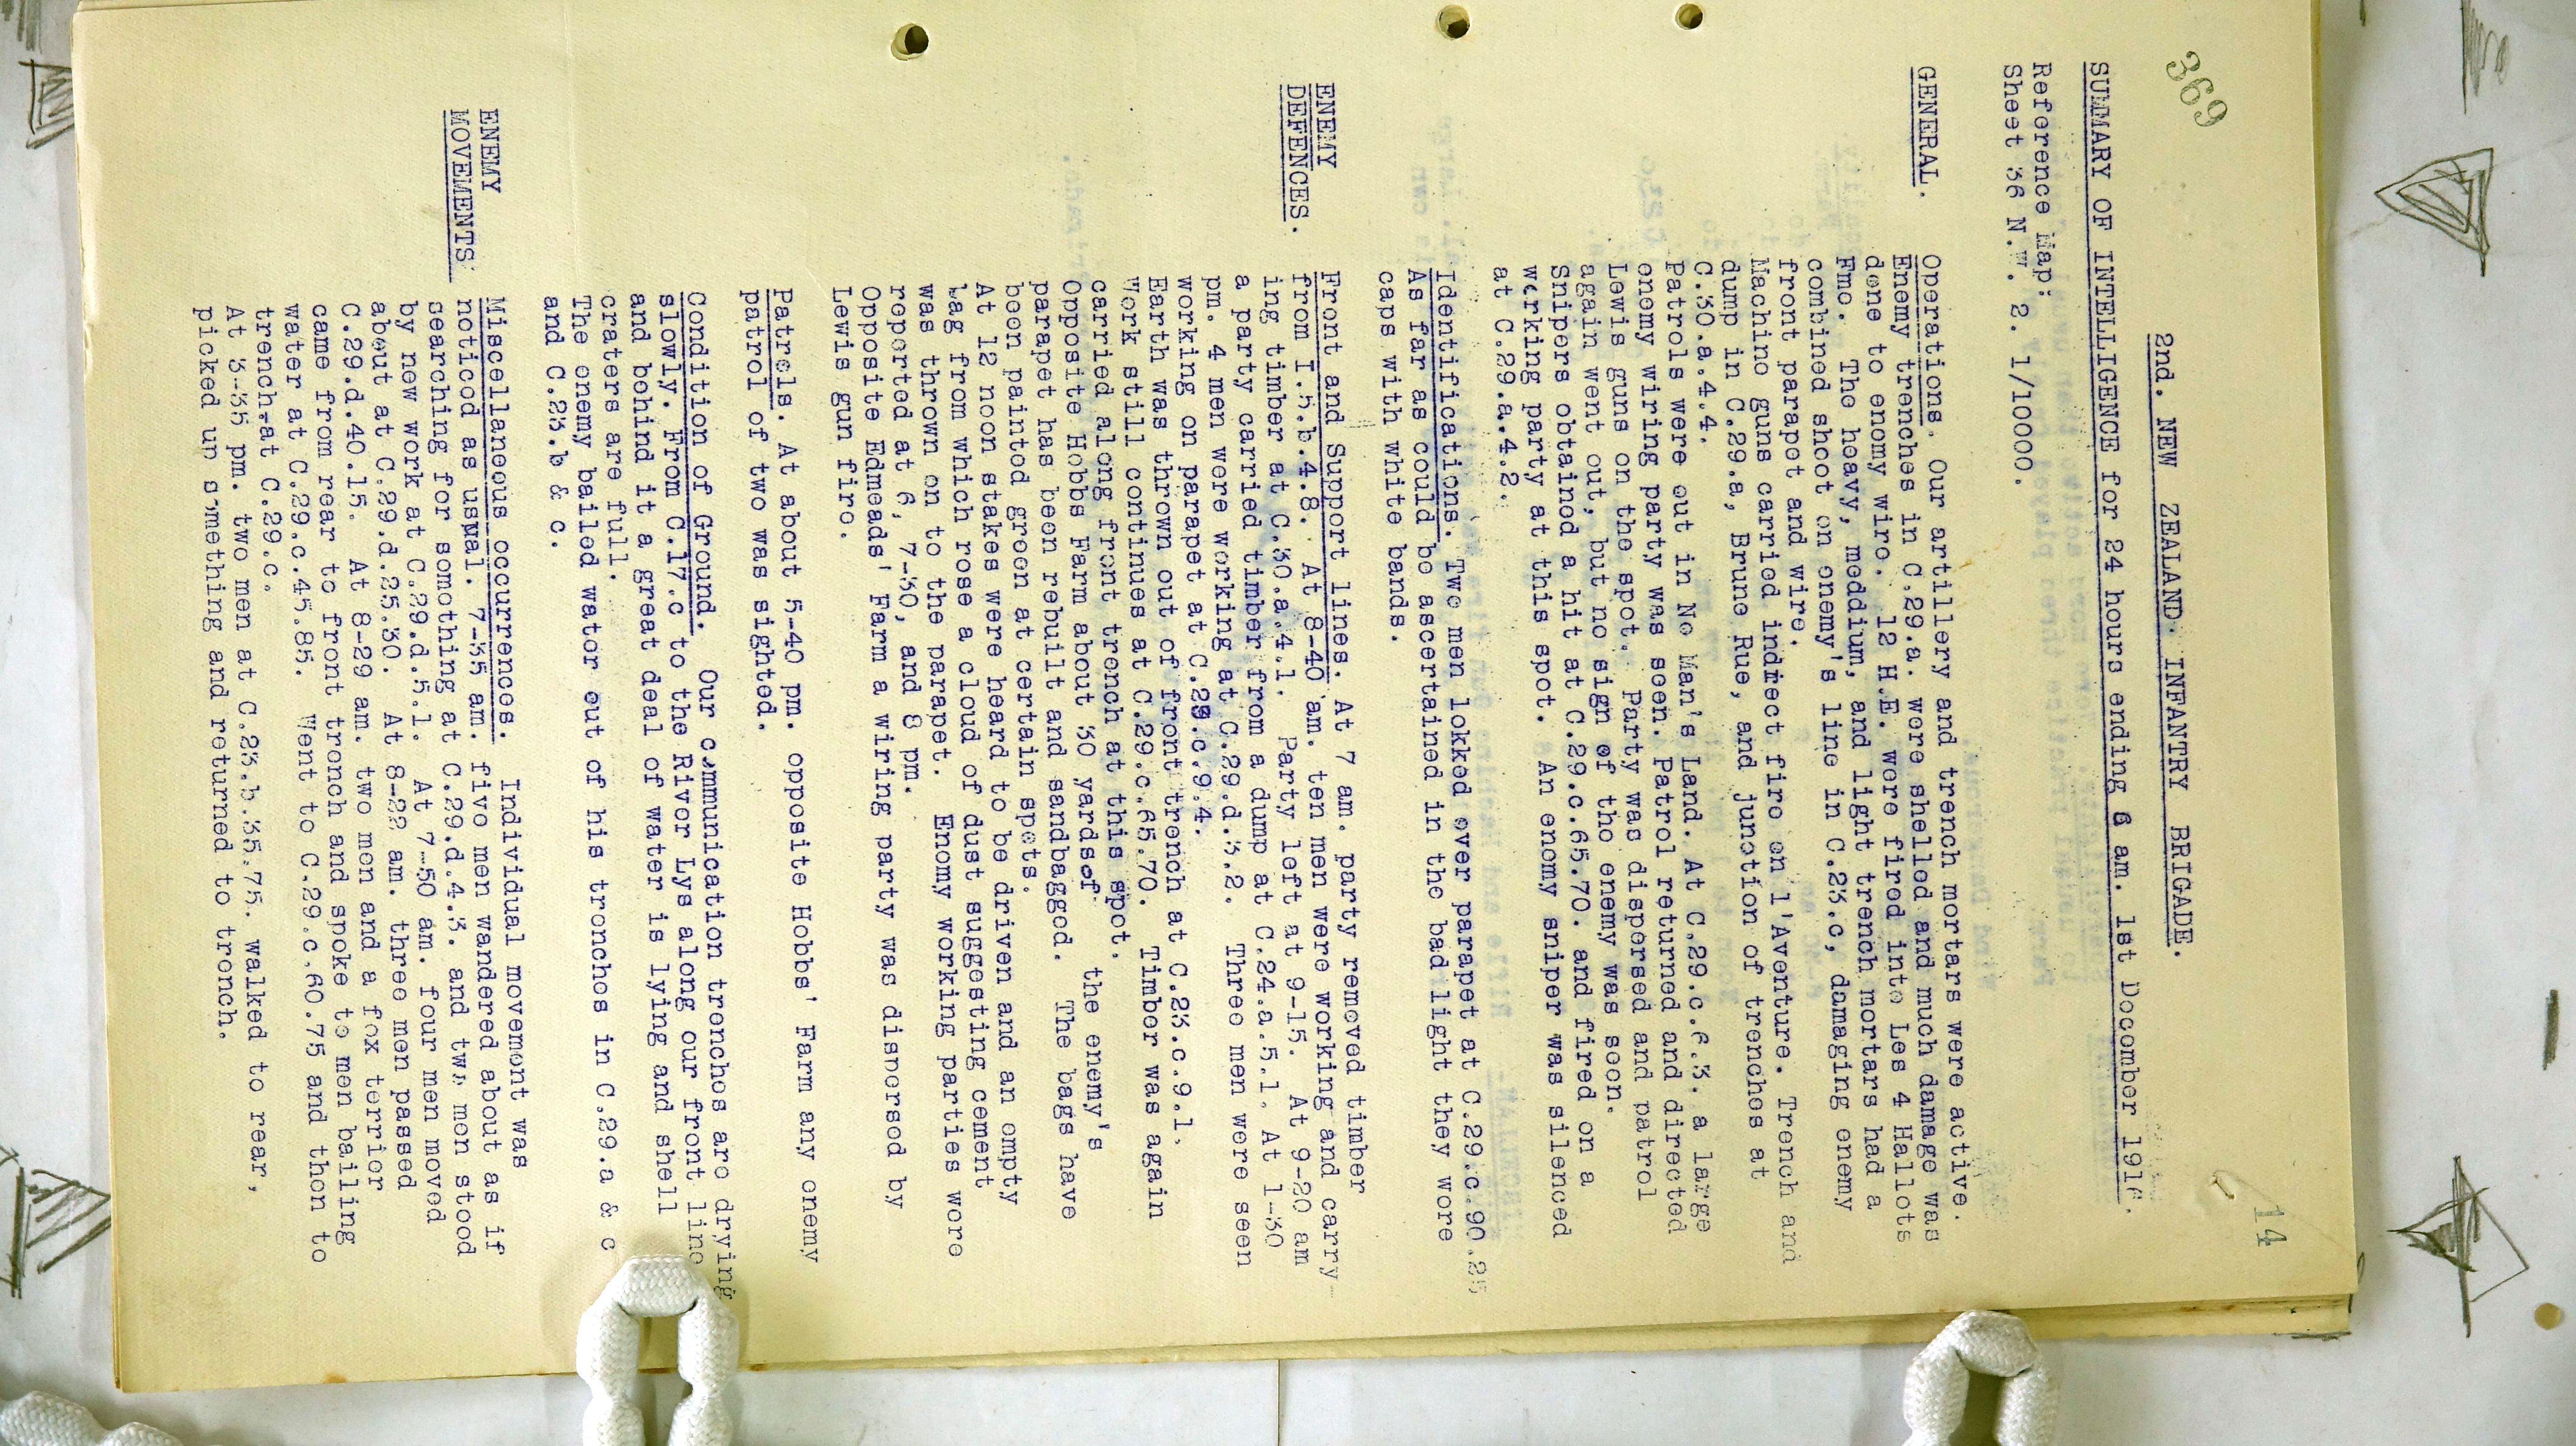 369
14
2nd. NEW ZEALAND. INFANTRY BRIGADE.
SUMMARY OF INTELLIGENCE for 24 hours ending 6 am. 1st December 1916.
Reference Map:
Sheet 36 N.W. 2. 1/10000.
GENERAL.
Operations. Our artillery and trench mortars were active.
Enemy trenches in C.29.a. were shelled and much damage was
done to enemy wire. 12 H.E. were fired into Les 4 Hallots
Fme. The heavy, meddium, and light trench mortars had a
combined shoot on enemy's line in C.23.c, damaging enemy
front parapet and wire.
Machine guns carried indirect fire on l'Aventure. Trench and
dump in C.29.a, Brune Rue, and junction of trenches at
C.30.a.4.4.
Patrols were out in No Man's Land. At C.29.c.6.3. a large
enemy wiring party was seen. Patrol returned and directed
Lewis guns on the spot. Party was dispersed and patrol
again went out, but no sign of the enemy was seen.
Snipers obtained a hit at C.29.c.65.70. and fired on a
working party at this spot. An enemy sniper was silenced
at C.29.a.4.2.
Identifications. Two men lokked over parapet at C.29.c.90.25
As far as could be ascertained in the bad light they wore
caps with white bands.
ENEMY
DEFENCES.
Front and Support lines. At 7 am. party removed timber
from I.5.b.4.8. At 8-40 am. ten men were working and carry-
ing timber at C.30.a.4.1. Party left at 9-15. At 9-20 am
a party carried timber from a dump at C.24.a.5.1. At 1-30
pm. 4 men were working at C.29.d.3.2. Three men were seen
working on parapet at C.29.c.9.4.
Earth was thrown out of front trench at C.23.c.9.1.
Work still continues at C.29.c.65.70. Timber was again
carried along front trench at this spot.
Opposite Hobbs Farm about 30 yards of the enemy's
parapet has been rebuilt and sandbagged. The bags have
been painted green at certain spots.
At 12 noon stakes were heard to be driven and an empty
bag from which rose a cloud of dust suggesting cement
was thrown on to the parapet. Enemy working parties were
reported at 6, 7-30, and 8 pm.
Opposite Edmeads' Farm a wiring party was dispersed by
Lewis gun fire.
Patrols. At about 5-40 pm. opposite Hobbs' Farm any enemy
patrol of two was sighted.
Condition of Ground. Our communication trenches are drying
slowly. From C.17.c to the River Lys along our front line
and behind it a great deal of water is lying and shell
craters are full.
The enemy bailed water out of his trenches in C.29.a & c
and C.23.b & c.
ENEMY
MOVEMENTS
Miscellaneous occurrences. Individual movement was
noticed as usual. 7-35 am. five men wandered about as if
searching for something at C.29.d.4.3. and two men stood
by new work at C.29.d.5.1. At 7-50 am. four men moved
about at C.29.d.25.30. At 8-22 am. three men passed
C.29.d.40.15. At 8-29 am. two men and a fox terrier
came from rear to front trench and spoke to men bailing
water at C.29.c.45.85. Went to C.29.c.60.75 and then to
trench at C.29.c.
At 3-35 pm. two men at C.23.b.35.75. walked to rear,
picked up something and returned to trench.